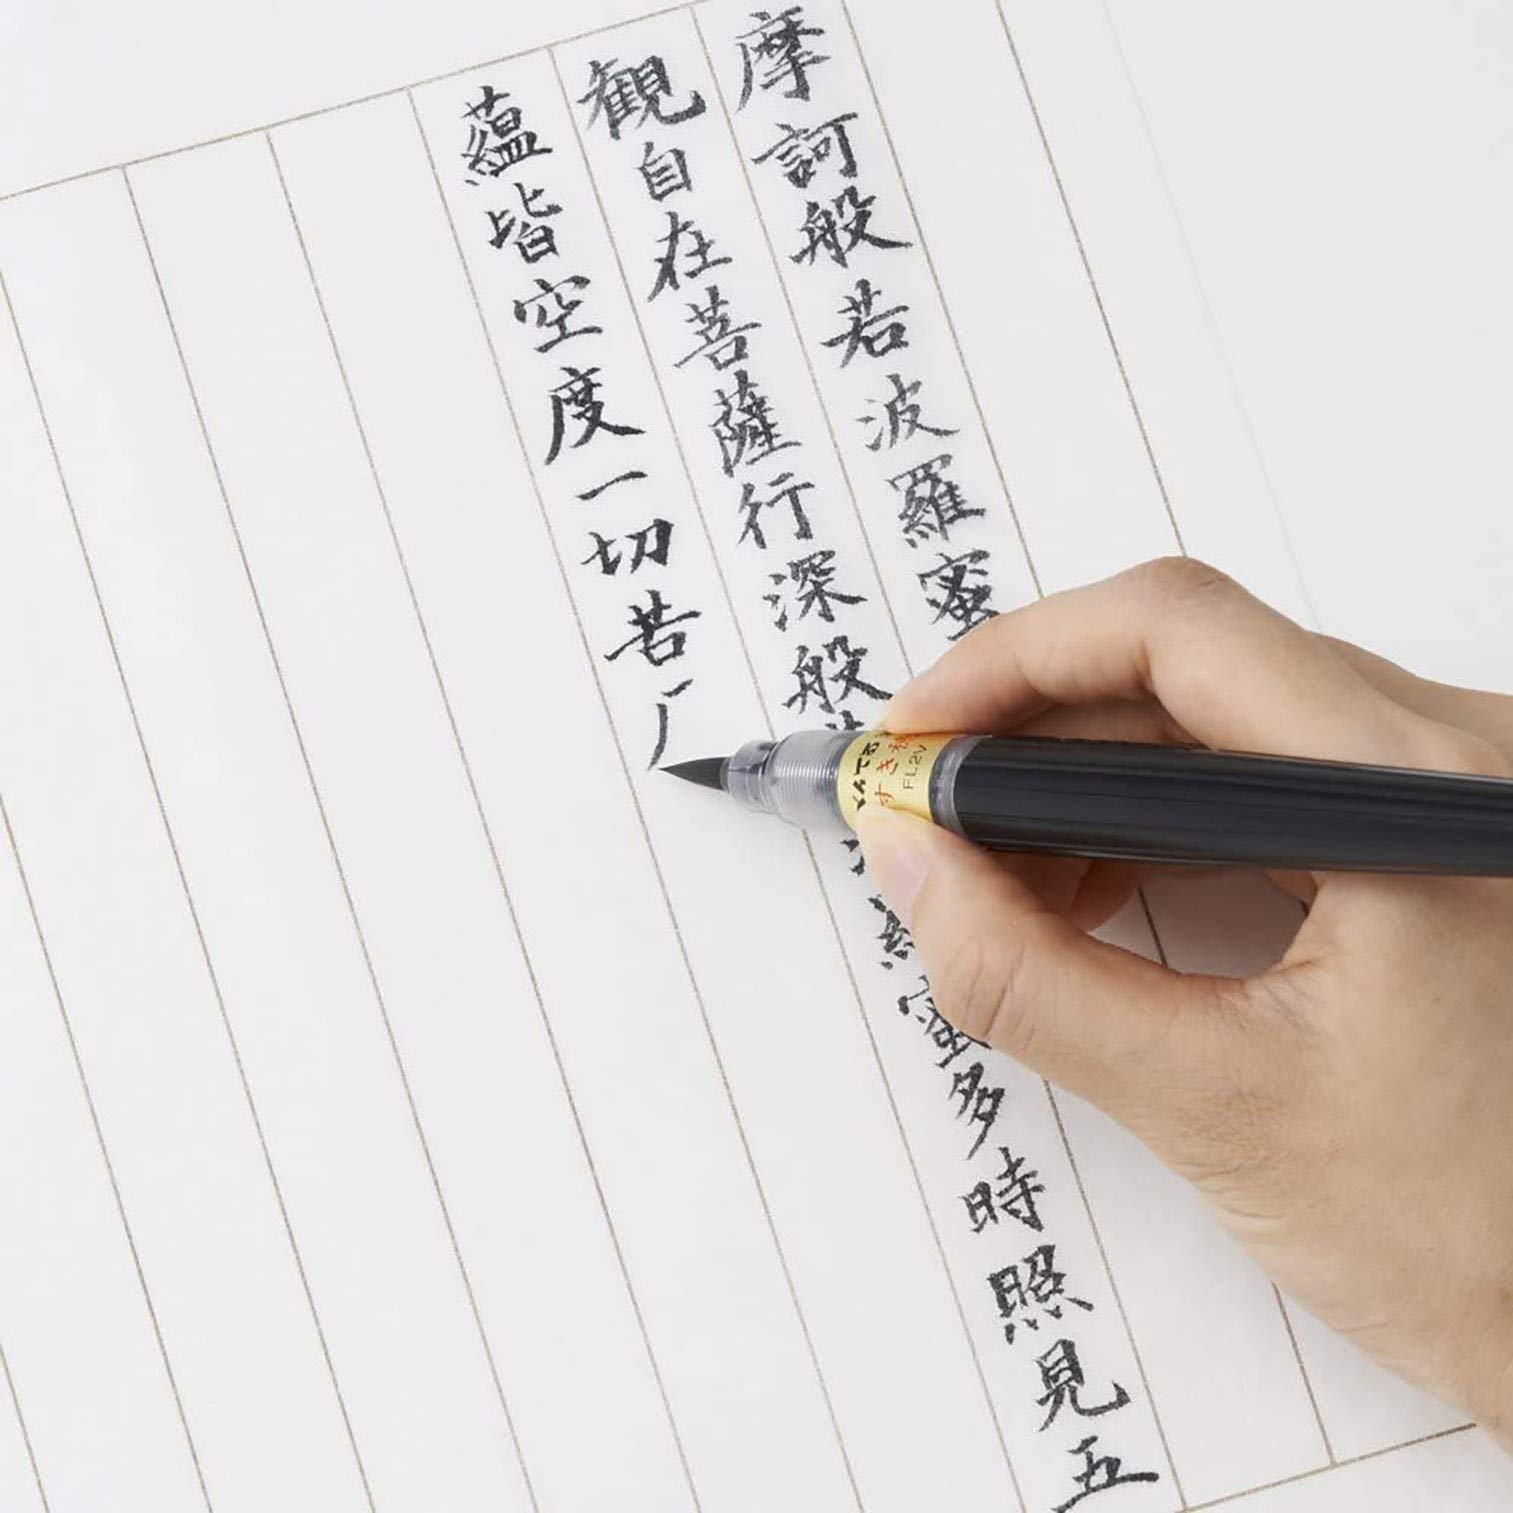 摩訶般若波羅蜜
観自在菩薩行深般
蜜多時照見五
蘊皆空度一切苦
ぺんてる
すき
FL2V